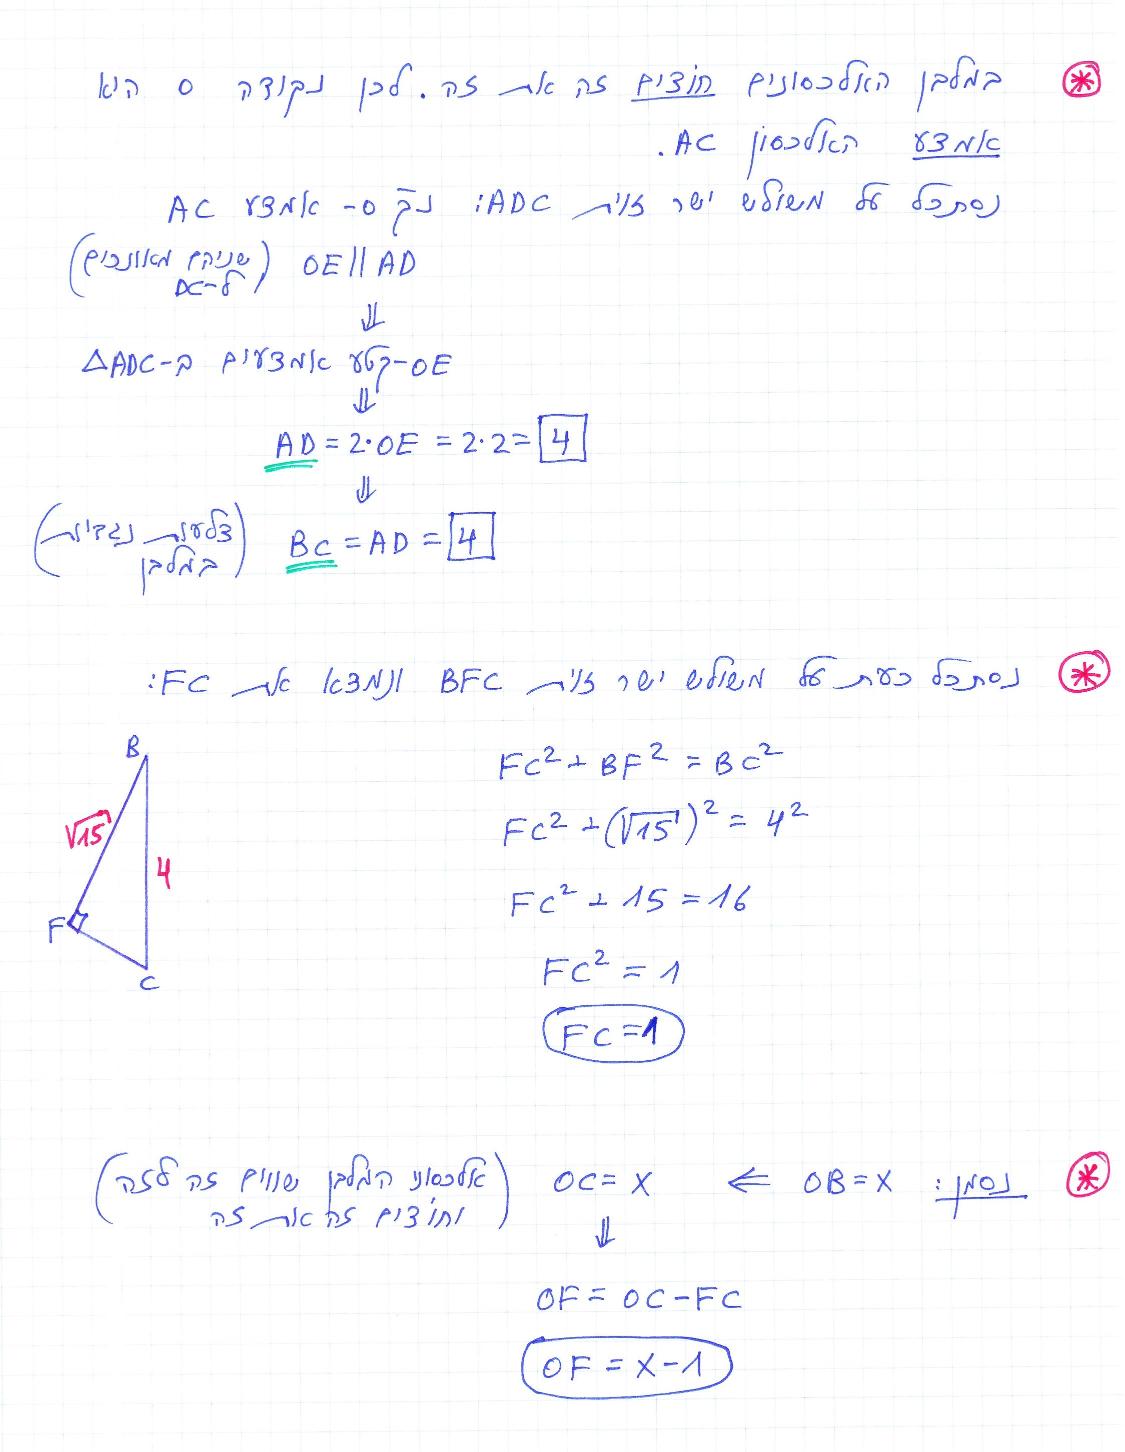 במלבן האלכסונים חוצים זה את זה. לכן נקודה O היא
אמצע האלכסון AC.
נסתכל על משולש ישר זוית ADC: נק' O- אמצע AC
OE || AD (שניהם מאונכים
ל-DC)
⇓
OE-קטע אמצעים ב-ΔADC
⇓
AD = 2·OE = 2·2 = 4
⇓
BC = AD = 4 (צלעות נגדיות
במלבן)
נסתכל כעת על משולש ישר זוית BFC ונמצא את FC:
B
√15
4
F
C
FC² + BF² = BC²
FC² + (√15)² = 4²
FC² + 15 = 16
FC² = 1
FC = 1
נסמן: OB = X ⇐ OC = X (אלכסוני המלבן שווים זה לזה
וחוצים זה את זה)
⇓
OF = OC - FC
OF = X - 1